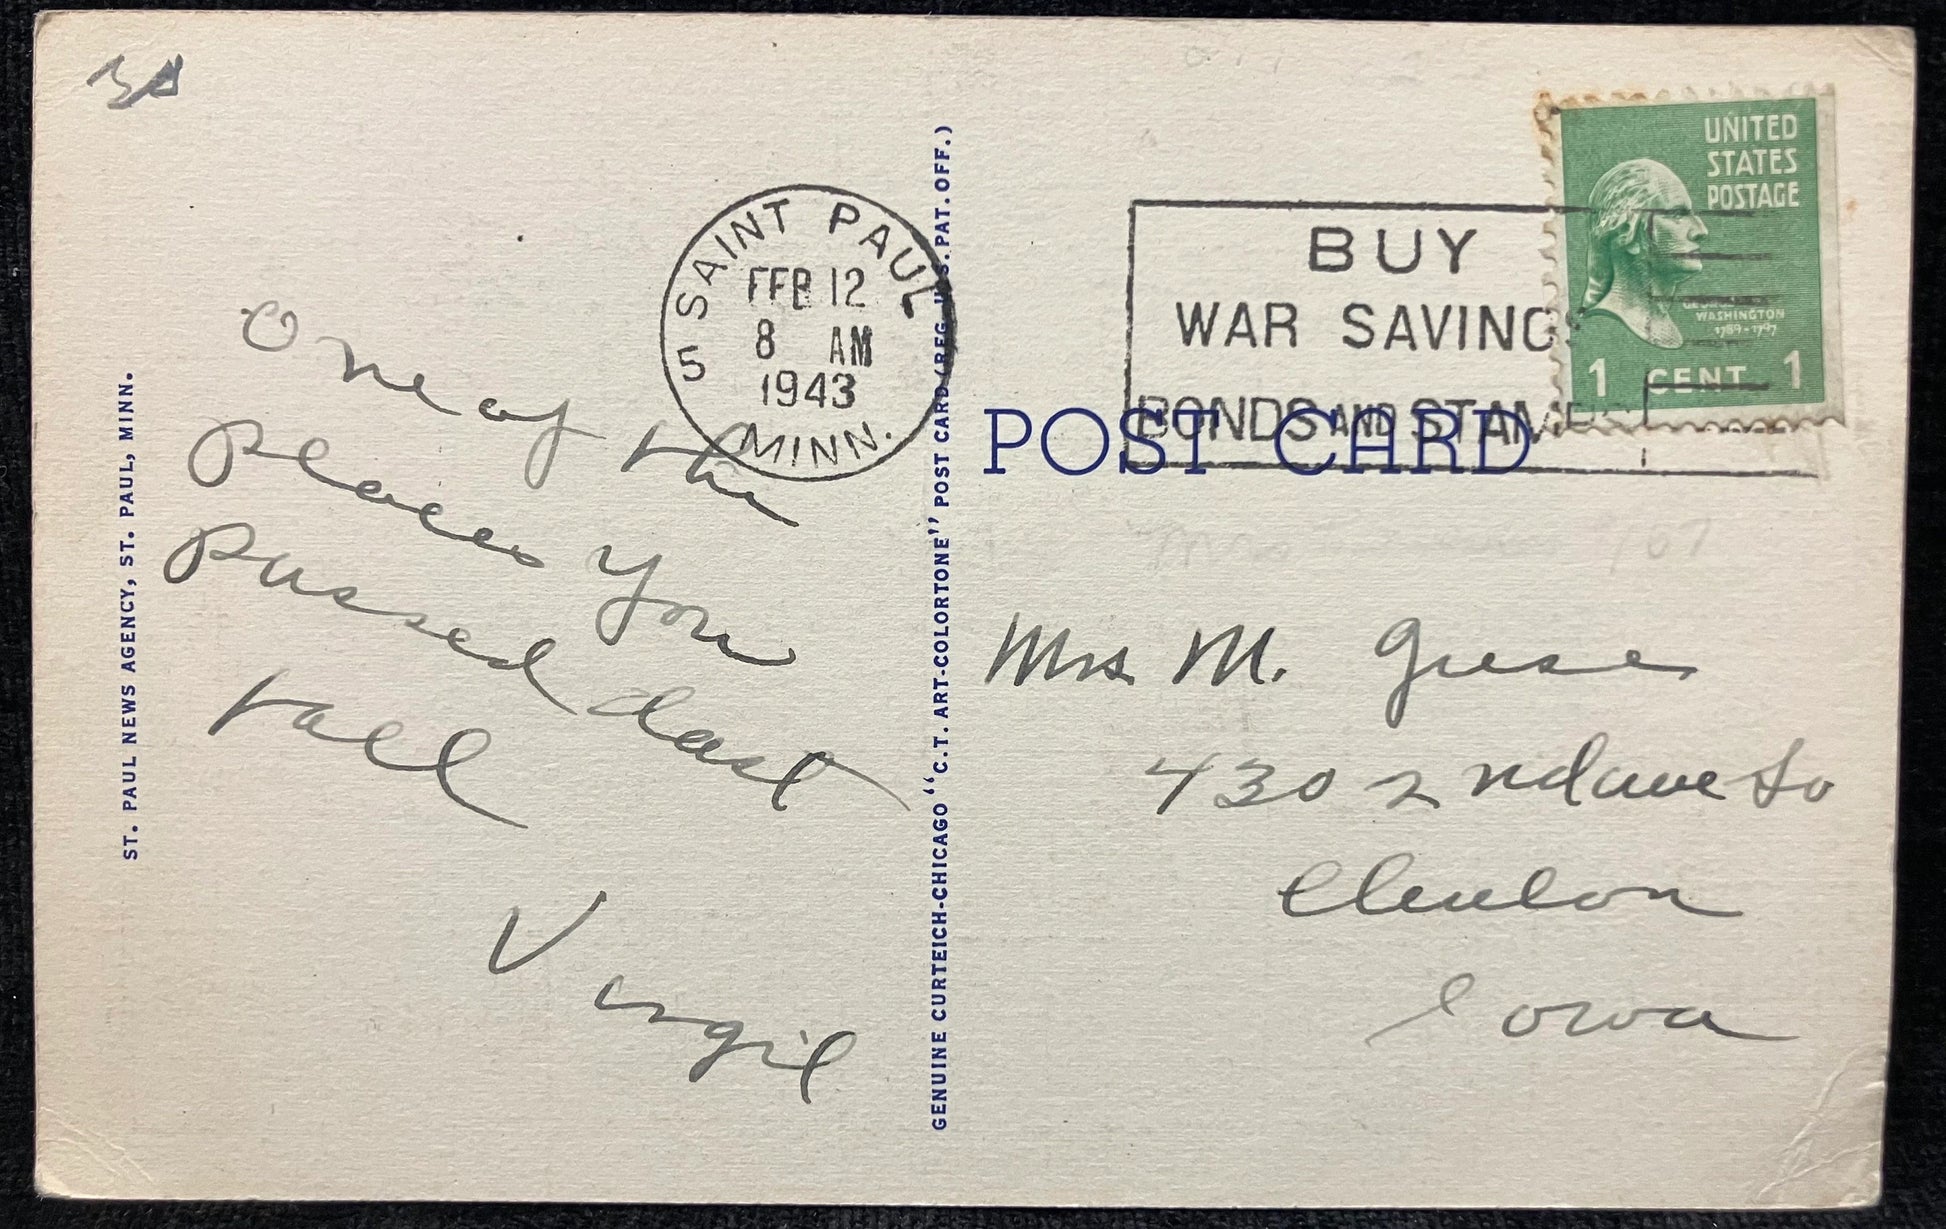 ST. PAUL NEWS AGENCY, ST. PAUL, MINN.
One of the
places you
passed last
fall
Virgil
SAINT PAUL
FEB 12
8 AM
1943
5
MINN.
GENUINE CURTEICH-CHICAGO "C.T. ART-COLORTONE" POST CARD (REG. U.S. PAT. OFF.)
BUY
WAR SAVINGS
BONDS AND STAMPS
UNITED
STATES
POSTAGE
GEORGE
WASHINGTON
1789-1797
1 CENT 1
POST CARD
Mrs M. Giese
430 2nd ave So
Clinton
Iowa